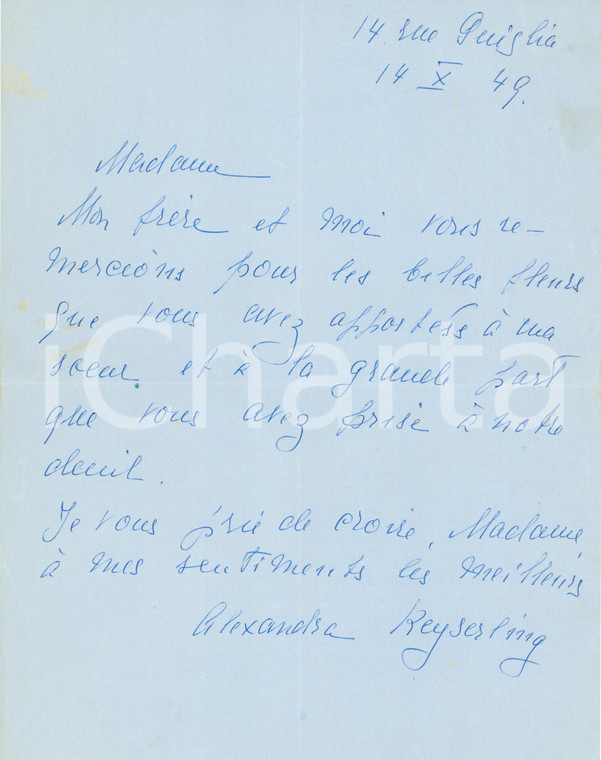 14 rue Quiglia
14 X 49.
Madame
Mon frère et moi vous re-
mercions pour les belles fleurs
que vous avez apportées à ma
soeur et à la grande part
que vous avez prise à notre
deuil.
Je vous prie de croire, Madame
à mes sentiments les meilleurs
Alexandra Keyserling
iCharta